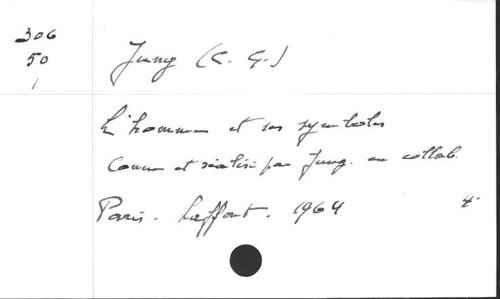 306
50
1
Jung (C. G.)
L'homme et ses symboles
Conçu et réalisé par Jung. en collab.
Paris. Laffont. 1964 4°